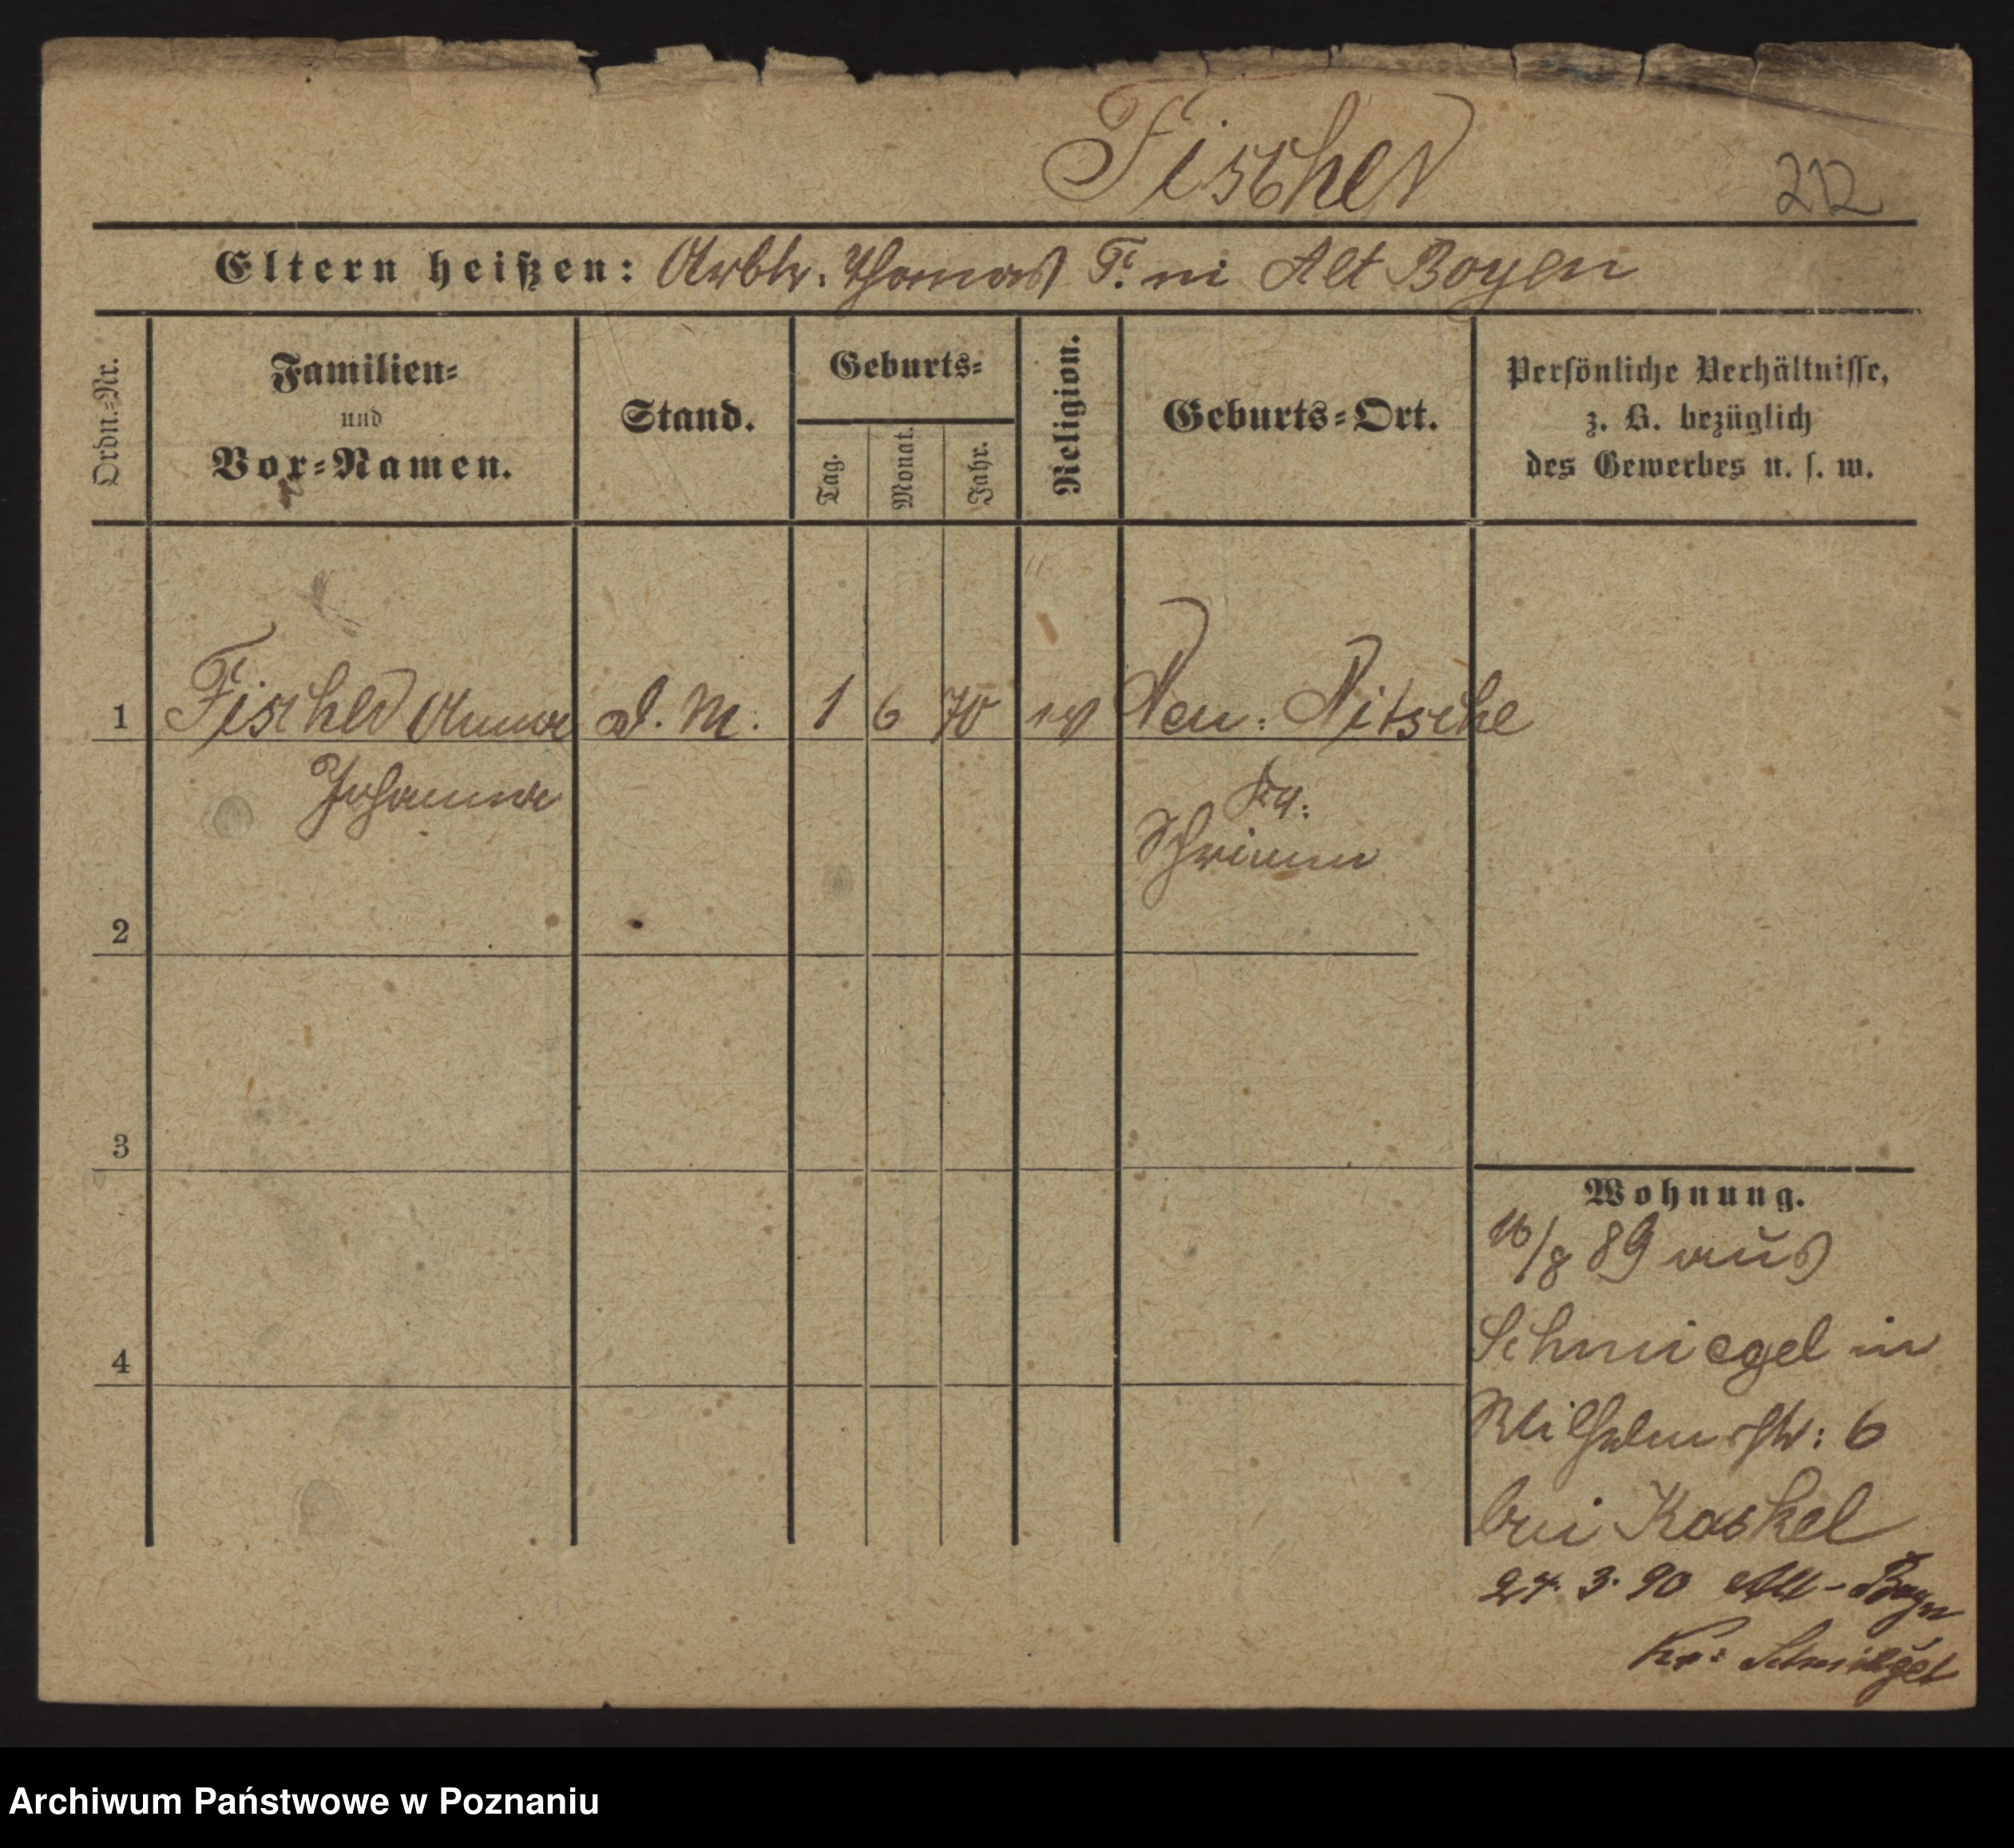 Fischer
212
Eltern heißen: Arbtr. Thomas F. in Alt Boyen
Ordn.-Nr.
Familien-
und
Vor-Namen.
Stand.
Geburts-
Tag.
Monat.
Jahr.
Religion.
Geburts-Ort.
Persönliche Verhältnisse,
z. B. bezüglich
des Gewerbes u. s. w.
1 Fischer Anna d. M. 1 6 70 ev Neu: Nitsche
Johanna
Kr:
Schrimm
2
3
4
Wohnung.
16/8 89 aus
Schmiegel in
Wilhelmstr: 6
bei Kaskel
24. 3. 90 Alt-Boyen
Kr: Schmiegel
Archiwum Państwowe w Poznaniu